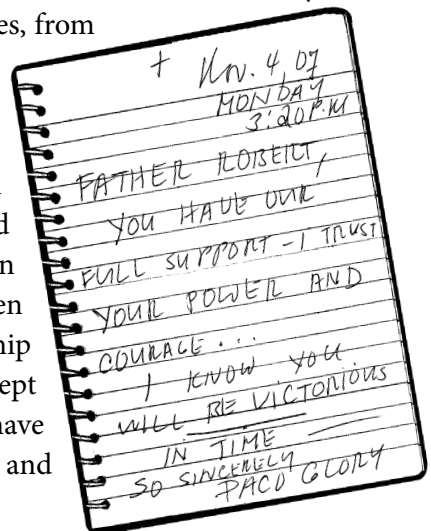 es, from
d
n
en
hip
ept
have
and
+ Nov. 4 07
MONDAY
3:20 P.M
FATHER ROBERT,
YOU HAVE OUR
FULL SUPPORT - I TRUST
YOUR POWER AND
COURAGE...
I KNOW YOU
WILL BE VICTORIOUS
IN TIME
SO SINCERELY
PACO GLORY